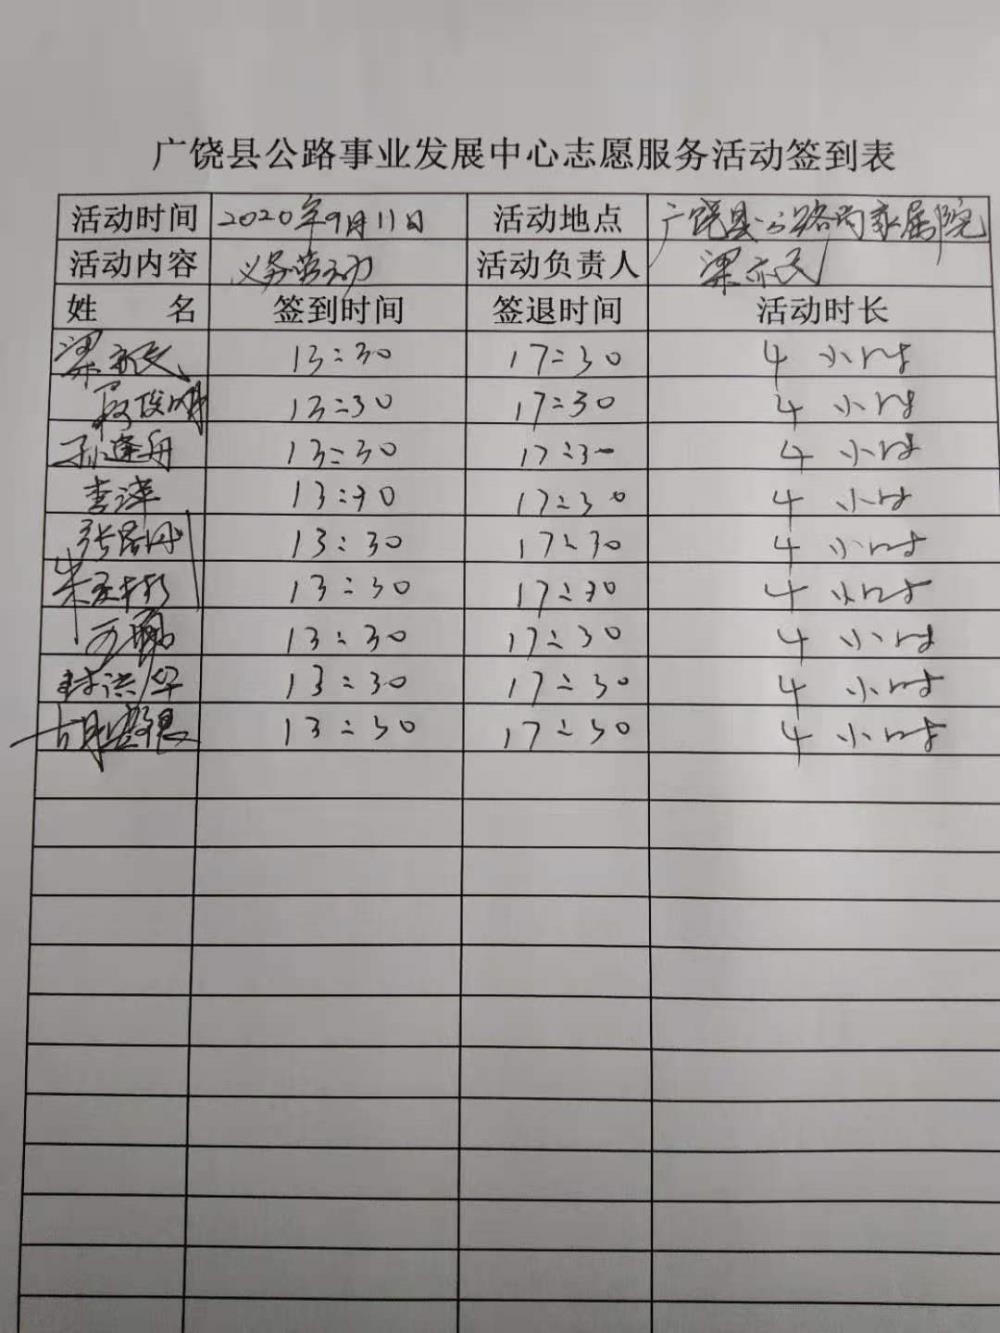 广饶县公路事业发展中心志愿服务活动签到表
活动时间 2020年9月11日 活动地点 广饶县公路局家属院
活动内容 义务劳动 活动负责人 梁亦民
姓 名 签到时间 签退时间 活动时长
梁亦民 13:30 17:30 4 小时
13:30 17:30 4 小时
孙逢舟 13:30 17:30 4 小时
李萍 13:30 17:30 4 小时
13:30 17:30 4 小时
13:30 17:30 4 小时
13:30 17:30 4 小时
13:30 17:30 4 小时
13:30 17:30 4 小时